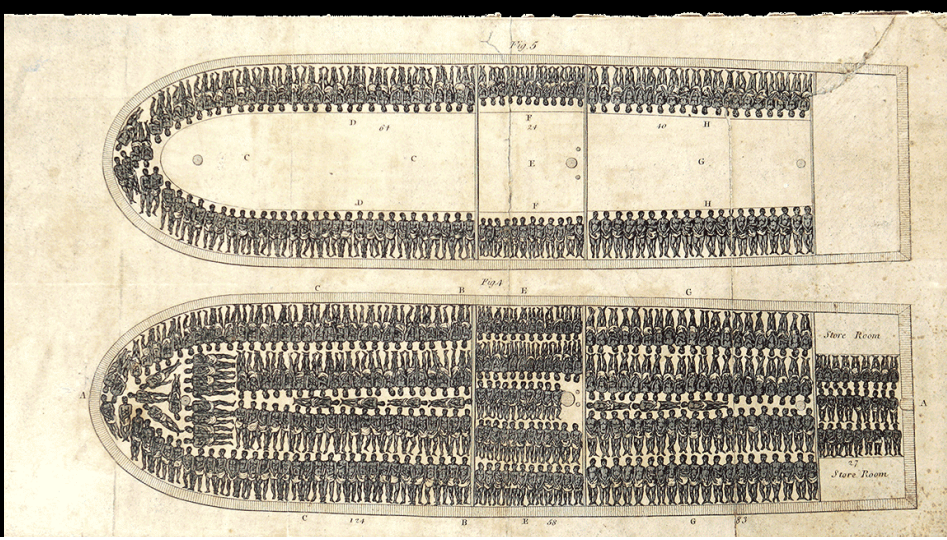 Fig. 5
D
64
F
21
40
H
C
C
E
G
D
F
H
Fig. 4
C
B
E
G
Store Room
A
A
27
Store Room
C
124
B
E
58
G
83